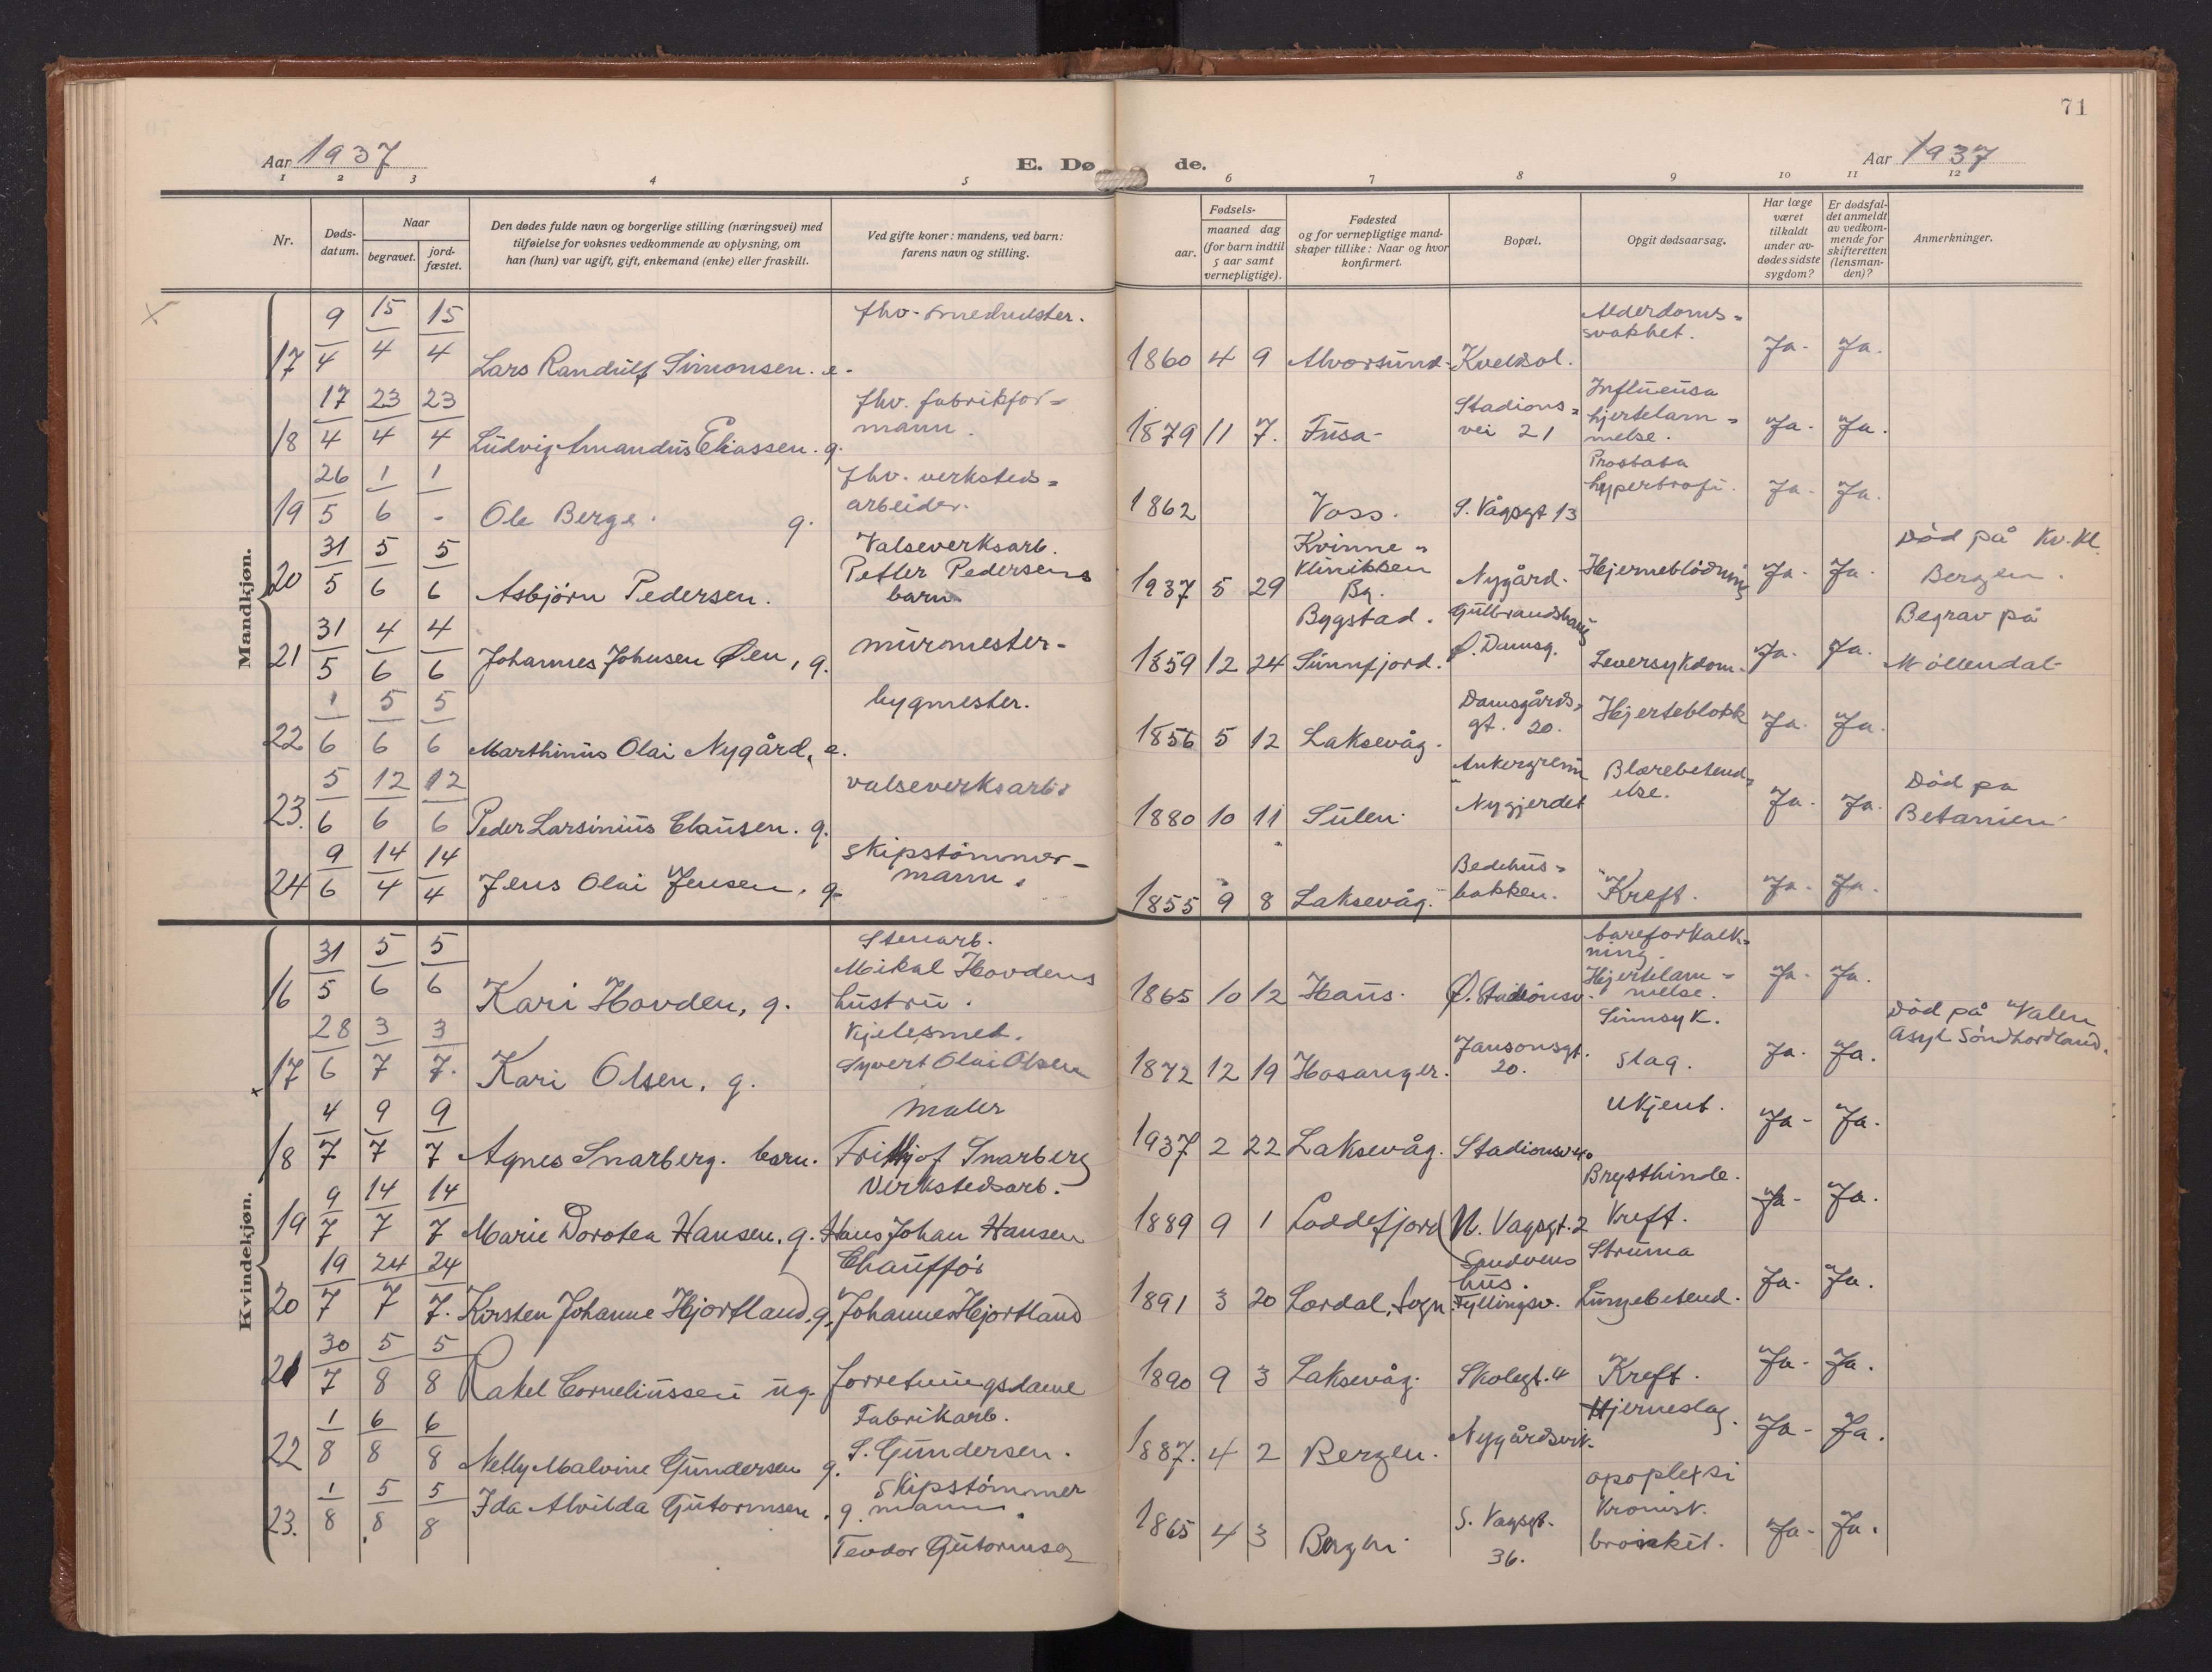 71
Aar 1937 E. Dø de. Aar 1937
1 2 3 4 5 6 7 8 9 10 11 12
Nr.
Døds-
datum.
Naar
begravet.
jord-
fæstet.
Den dødes fulde navn og borgerlige stilling (næringsvei) med
tilføielse for voksnes vedkommende av oplysning, om
han (hun) var ugift, gift, enkemand (enke) eller fraskilt.
Ved gifte koner: mandens, ved barn:
farens navn og stilling.
Fødsels-
aar.
maaned dag
(for barn indtil
5 aar samt
vernepligtige).
Fødested
og for vernepligtige mand-
skaper tillike: Naar og hvor
konfirmert.
Bopæl.
Opgit dødsaarsag.
Har læge
været
tilkaldt
under av-
dødes sidste
sygdom?
Er dødsfal-
det anmeldt
av vedkom-
mende for
skifteretten
(lensman-
den)?
Anmerkninger.
Mandkjøn.
17 9/4 15/4 15/4 Lars Randulf Simonsen. e. fhv. smedmester. 1860 4 9 Alversund. Alderdoms=
svakhet. Ja. Ja.
18 17/4 23/4 23/4 Ludvig Amandus Eliassen. g. fhv. fabrikfor=
mann. 1879 11 7. Fusa. Stadions=
vei 21 Influensa
hjertelam=
melse. Ja. Ja.
19 26/5 1/6 1/- Ole Berge. g. fhv. verksteds=
arbeider. 1862 Voss. S. Vågsgt 13 Prostata
hypertrofi. Ja. Ja.
20 31/5 5/6 5/6 Asbjørn Pedersen. Valseverksarb.
Petter Pedersens
barn. 1937 5 29 Kvinne=
klinikken
Bg. Nygård. Hjerneblödning Ja. Ja. Död på Kv. Kl.
Bergen.
21 31/5 4/6 4/6 Johannes Johnsen Øen, g. murmester. 1859 12 24 Bygstad.
Sunnfjord. Gulbrandshaug
Ø. Damsg. Leversykdom. Ja. Ja. Begrav på
Möllendal
22 1/6 5/6 5/6 Marthinus Olai Nygård, e. bygmester. 1856 5 12 Laksevåg. Damsgårds=
gt. 20. Hjerteblokk Ja. Ja.
23. 5/6 12/6 12/6 Peder Larsinius Clausen. g. valseverksarb. 1880 10 11 Sulen. Nygjerdet Blærebetend=
else. Ja. Ja. Död på
Betanien
24 9/6 14/4 14/4 Jens Olai Jensen, g. skipstömmer=
mann. 1855 9 8 Laksevåg. Bedehus=
bakken. Kreft. Ja. Ja.
Kvindekjøn.
16 31/5 5/6 5/6 Kari Hovden, g. Stenarb.
Mikal Hovdens
hustru. 1865 10 12 Haus. Ø. Stadionsv. åreforkalk=
ning.
Hjertelam=
melse. Ja. Ja.
17 28/6 3/7 3/7. Kari Olsen, g. Kjelesmed.
Syvert Olai Olsen 1872 12 19 Hosanger. Jansonsgt.
20. Sinnsyk.
Slag. Ja. Ja. Död på Valen
Asyl Söndhordland.
18 4/7 9/7 9/7 Agnes Snarberg. barn. Maler
Frithjof Snarberg 1937 2 22 Laksevåg. Ukjent. Ja. Ja.
19 9/7 14/7 14/7 Marie Dorotea Hansen, g. Verkstedsarb.
Hans Johan Hansen 1889 9 1 Loddefjord N. Vagsgt. 2 Brysthinde.
Kreft. Ja. Ja.
20 19/7 24/7 24/7. Kirsten Johanne Hjortland, g. Chauffør
Johannes Hjortland 1891 3 20 Lærdal, Sogn. Sandvens
hus.
Fyllingsv. Struma
Lungebetend. Ja. Ja.
21 30/7 5/8 5/8 Rakel Corneliussen ug. forretningsdame 1890 9 3 Laksevåg. Skolegt. 4 Kreft. Ja. Ja.
22 1/8 6/8 6/8 Nelly Malvine Gundersen g. Fabrikarb.
S. Gundersen. 1887. 4 2 Bergen. Nygårdsvik. Hjerneslag. Ja. Ja.
23. 1/8 5/8 5/8 Ida Alvilda Gutormsen. g. Skipstömmer
mann.
Teodor Gutormsen 1865 4 3 Bergen. S. Vagsgt.
36. apoplexi
Kronisk.
bronkit. Ja. Ja.